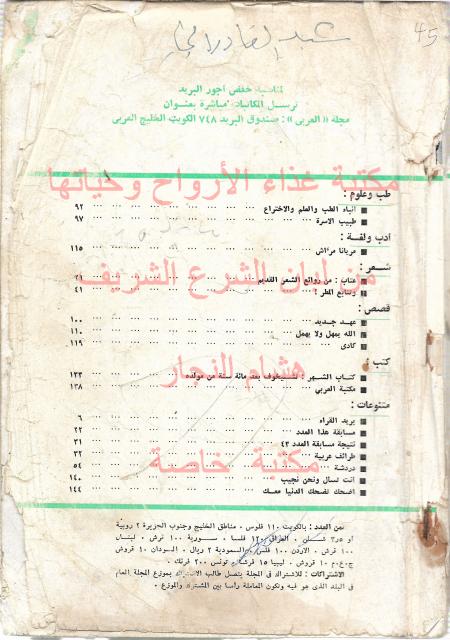 45
لمناسبة خفض أجور البريد
ترسل المكاتبات مباشرة بعنوان
مجلة «العربي»: صندوق البريد ٧٤٨ الكويت الخليج العربي
مكتبة غذاء الأرواح وحياتها
طب وعلوم :
أنباء الطب والعلم والاختراع ٩٢
طبيب الاسرة ٩٧
أدب ولغة :
مريانا مراش ١١٥
من لبان الشرع الشريف
شعر :
عتاب : من روائع الشعر القديم ٢١
وتتابع المطر : ٤١
قصص :
عهد جديد ١٠٠
الله يمهل ولا يهمل ١١٠
كادى ١١٩
هشام النجار
كتب :
كتاب الشهر : تشيخوف بعد مائة سنة من مولده ١٢٣
مكتبة العربي ١٣٨
متنوعات :
بريد القراء ٦
مسابقة هذا العدد ٢٢
نتيجة مسابقة العدد ٤٣ ٣١
طرائف عربية ٣٢
دردشة ٥٤
انت تسأل ونحن نجيب ١٤٠
اضحك تضحك الدنيا معك ١٤٤
مكتبة خاصة
ثمن العدد : بالكويت ١١٠ فلوس ، مناطق الخليج وجنوب الجزيرة ٢ روبية
أو ٣٫٥ شلن ، العراق ١٢٠ فلسا ، سورية ١٠٠ قرش ، لبنان
١٠٠ قرش ، الاردن ١٠٠ فلس ، السعودية ٢ ريال ، السودان ١٠ قروش
ج.ع.م ١٠ قروش ، ليبيا ١٥ قرشا ، تونس ٢٠٠ فرنك .
الاشتراكات : للاشتراك في المجلة يتصل طالب الاشتراك بموزع المجلة العام
في البلد الذي هو فيه وتكون المعاملة رأسا بين المشترك والموزع .